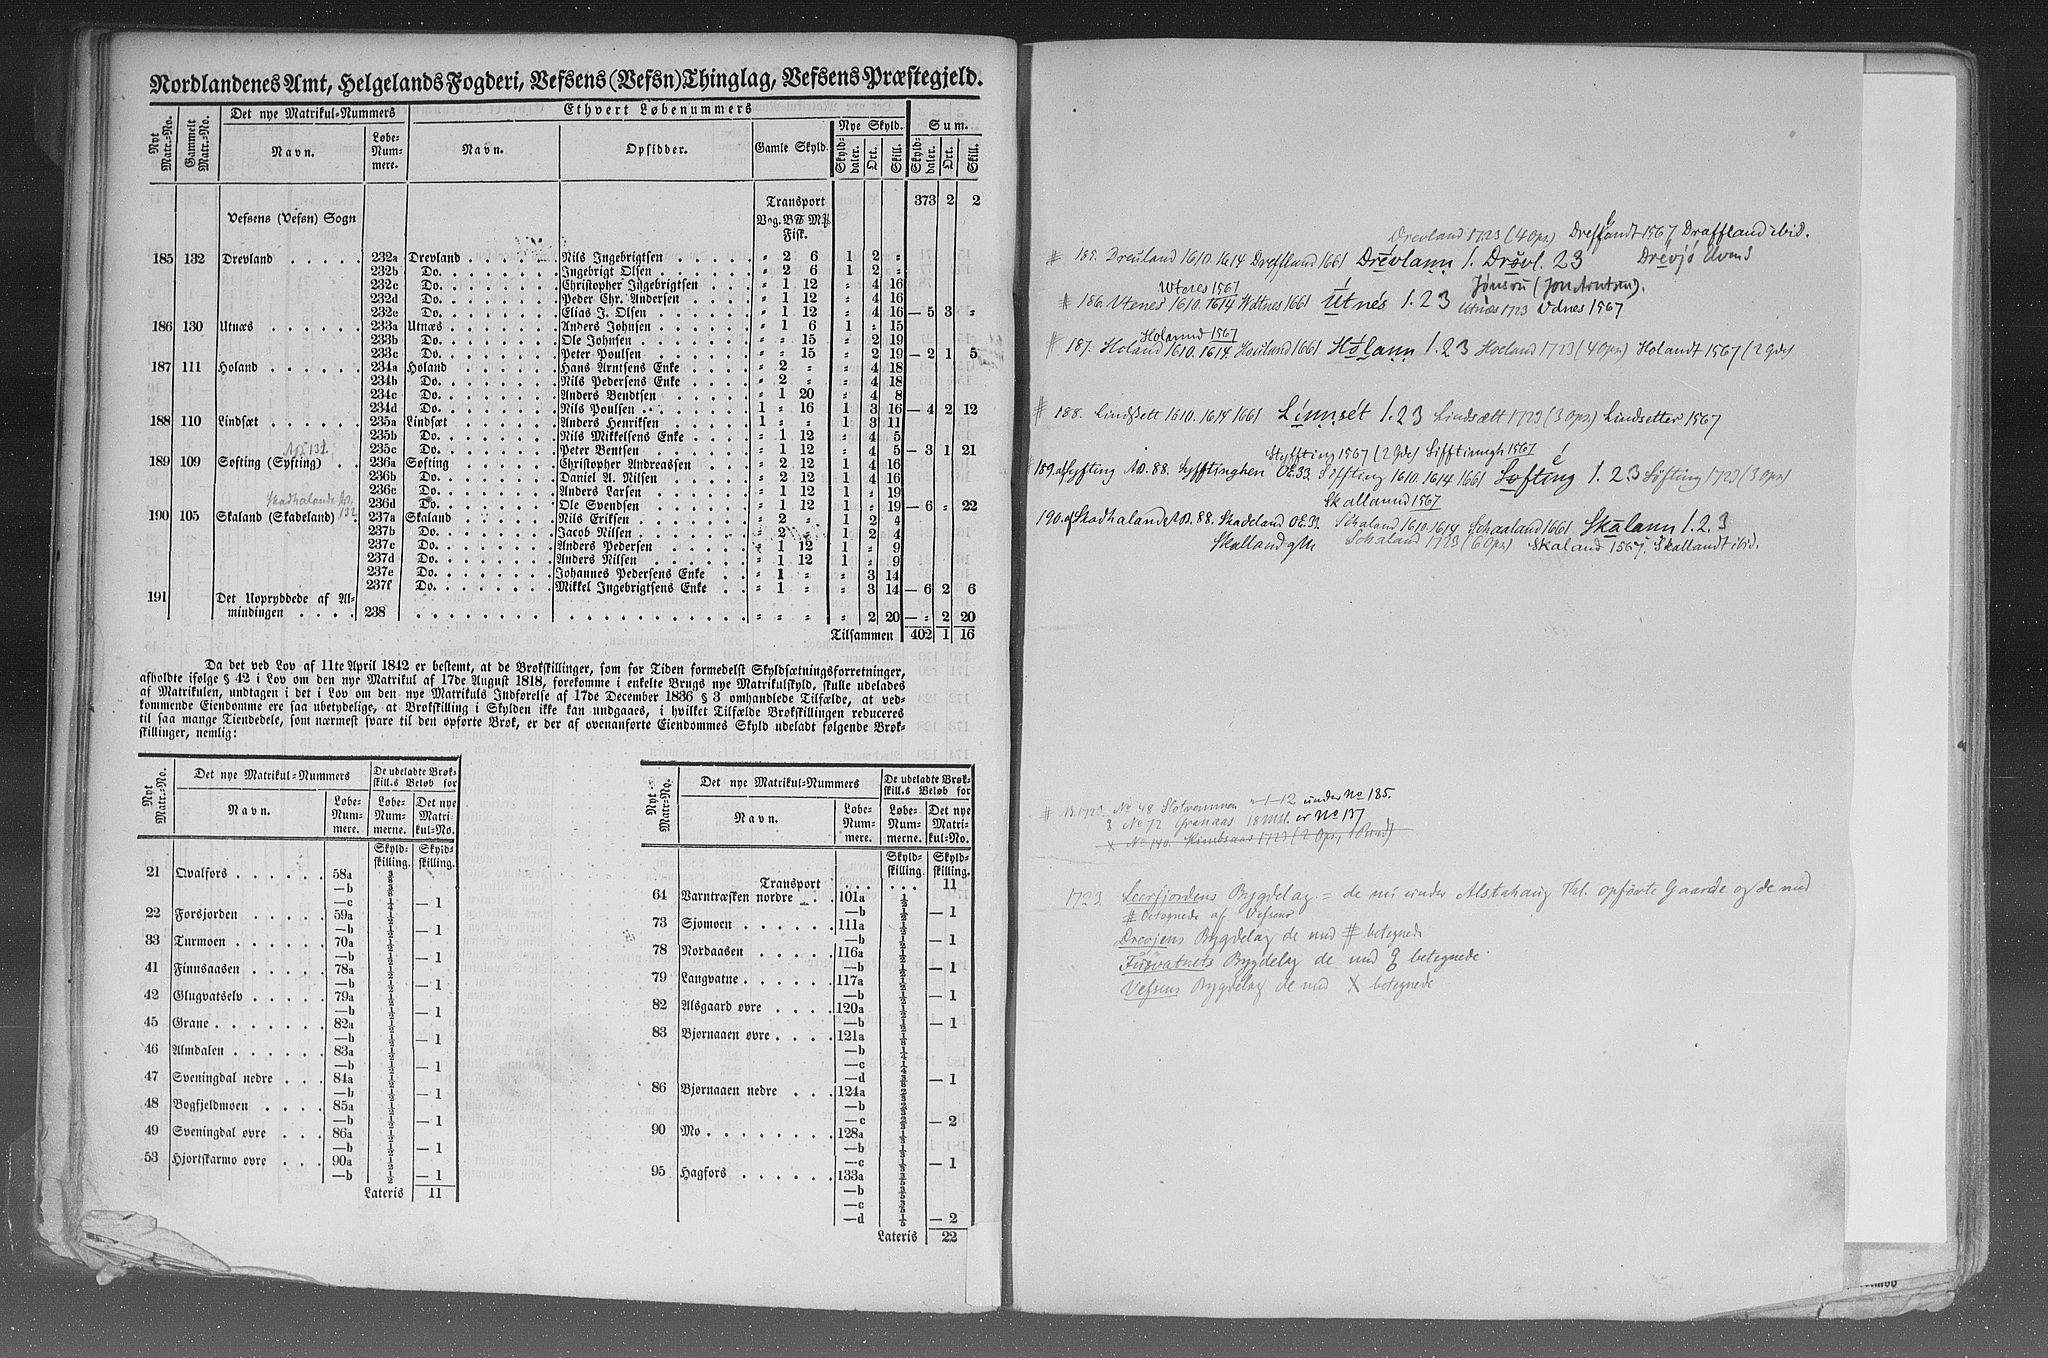 Nordlandenes Amt, Helgelands Fogderi, Vefsens (Vefsn) Thinglag, Vefsens Præstegjeld.
Nyt Matr.-No. Gammelt Matr.-No. Det nye Matrikul-Nummers Ethvert Løbenummers
Navn. Løbe-Num-mere. Navn. Opsidder. Gamle Skyld. Nye Skyld. Sum.
Skyld-daler. Ort. Skill. Skyld-daler. Ort. Skill.
Transport 373 2 2
Vefsens (Vefsn) Sogn Vog. B℔ M℔
Fisk.
185 132 Drevland 232a Drevland Nils Ingebrigtsen " 2 6 1 2 "
232b Do. Ingebrigt Olsen " 2 6 1 2 "
232c Do. Christopher Ingebrigtsen " 1 12 " 4 16
232d Do. Peder Chr. Andersen " 1 12 " 4 16
232e Do. Elias J. Olsen " 1 12 " 4 16 — 5 3 "
186 130 Utnæs 233a Utnæs Anders Johnsen " 1 6 1 " 15
233b Do. Ole Johnsen " " 15 " 2 19
233c Do. Peter Poulsen " " 15 " 2 19 — 2 1 5
187 111 Holand 234a Holand Hans Arntsens Enke " 2 " " 4 18
234b Do. Nils Pedersens Enke " 2 " " 4 18
234c Do. Anders Bendtsen " 1 20 " 4 8
234d Do. Nils Poulsen 1 " 16 1 3 16 — 4 2 12
188 110 Lindsæt 235a Lindsæt Anders Henriksen 1 " " 1 3 11
235b Do. Nils Mikkelsens Enke " 1 12 " 4 5
235c Do. Peter Bentsen " 1 12 " 4 5 — 3 1 21
189 109 Søfting (Syfting) 236a Søfting Christopher Andreassen " 2 12 1 4 16
236b Do. Daniel A. Nilsen " 2 12 1 4 16
236c Do. Anders Larsen " 1 12 1 " 19
Skadhalande
236d Do. Ole Svendsen " 1 12 1 " 19 — 6 " 22
190 105 Skaland (Skadeland) 237a Skaland Nils Eriksen " 2 " 1 2 4
237b Do. Jacob Nilsen " 2 " 1 2 4
237c Do. Anders Pedersen " 1 12 1 " 9
237d Do. Anders Nilsen " 1 12 1 " 9
237e Do. Johannes Pedersens Enke " 1 " " 3 14
237f Do. Mikkel Ingebrigtsens Enke " 1 " " 3 14 — 6 2 6
191 Det Uopryddede af Al-
mindingen 238 " " " " 2 20 — " 2 20
Tilsammen 402 1 16
Da det ved Lov af 11te April 1842 er bestemt, at de Brøkskillinger, som for Tiden formedelst Skyldsætningsforretninger,
afholdte ifølge § 42 i Lov om den nye Matrikul af 17de August 1818, forekomme i enkelte Brugs nye Matrikulskyld, skulle udelades
af Matrikulen, undtagen i det i Lov om den nye Matrikuls Indførelse af 17de December 1836 § 3 omhandlede Tilfælde, at ved-
kommende Eiendomme ere saa ubetydelige, at Brøkskilling i Skylden ikke kan undgaaes, i hvilket Tilfælde Brøkskillingen reduceres
til saa mange Tiendedele, som nærmest svare til den opførte Brøk, er der af ovenanførte Eiendommes Skyld udeladt følgende Brøk-
skillinger, nemlig:
Nyt Matr.-No. Det nye Matrikul-Nummers De udeladte Brøk-skill.s Beløb for
Navn. Løbe-Num-mere. Løbe-Num-merne. Det nye Matri-kul-No.
Skyld-skilling. Skyld-skilling.
21 Hvalfors 58a
—b
—c — 1
22 Forsjorden 59a
—b — 1
33 Turmoen 70a
—b — 1
41 Finnsaasen 78a
—b — 1
42 Glugvatselv 79a
—b — 1
45 Grane 82a
—b — 1
46 Almdalen 83a
—b — 1
47 Sveningdal nedre 84a
—b — 1
48 Bogfjeldmoen 85a
—b — 1
49 Sveningdal øvre 86a
—b — 1
53 Hjortskarmo øvre 90a
—b — 1
Lateris 11
Nyt Matr.-No. Det nye Matrikul-Nummers De udeladte Brøk-skill.s Beløb for
Navn. Løbe-Num-mere. Løbe-Num-merne. Det nye Matri-kul-No.
Skyld-skilling. Skyld-skilling.
Transport 11
64 Varntræsken nordre 101a
—b — 1
73 Sjomoen 111a
—b — 1
78 Nordaasen 116a
—b — 1
79 Langvatne 117a
—b — 1
82 Alsgaard øvre 120a
—b — 1
83 Bjørnaaen øvre 121a
—b
—c
—d — 1
86 Bjørnaaen nedre 124a
—b
—c — 2
90 Mo 128a
—b
—c — 1
95 Hagfors 133a
—b
—c
—d — 2
Lateris 22
Drevland 1723 (4 Ops.) Drefflandt 1567 Draffland ibid.
# 185. Dreuland 1610. 1614 Dreffland 1661 Drevlann 1. Drøvl. 23 Drevjö
Utenes 1567 Jönsen (Jon Arntsen).
# 186. Vtenes 1610. 1614 Wdtnes 1661 Útnés 1. 2 3 Utnæs 1723 Vdnes 1567
Holannd 1567
# 187. Holand 1610. 1614 Houland 1661 Hólann 1. 2 3 Hoeland 1723 (4 Ops.) Holandt 1567 (2 Gde)
# 188. Lindssett 1610. 1614 1661 Linnsét 1. 2 3 Lindsætt 1723 (3 Ops.) Lindsetter 1567
Styffting 1567 (2 Gde) Siffting 1567
# 189. af Syfting AB. 88. Syfftinghen OE. 33. Siffting 1610. 1614 1661 Søfting 1. 2. 3 Søfting 1723 (3 Ops)
Skallannd 1567
190. af Skadhalande AB. 88. Skadeland OE. 31. Schaland 1610. 1614 Schaaland 1661 Skālann 1. 2. 3
Skalland Schaland 1723 (6 Ops.) Skaland 1567. Skallandt ibid.
# No 48 Slotremmen " – 1 – 12 under No 185.
No 72 Granaas 18 Mkl. er No 137
X No 140. Kimbsaas 1723 (2 Ops.)
1723 Leerfjordens Bygdelag = de nu under Alstahaug Thl. opførte Gaarde og de med
# betegnede af Vefsen
Drevjens Bygdelag de med # betegnede
Fusvatnets Bygdelag de med betegnede.
Vefsens Bygdelag de med X betegnede